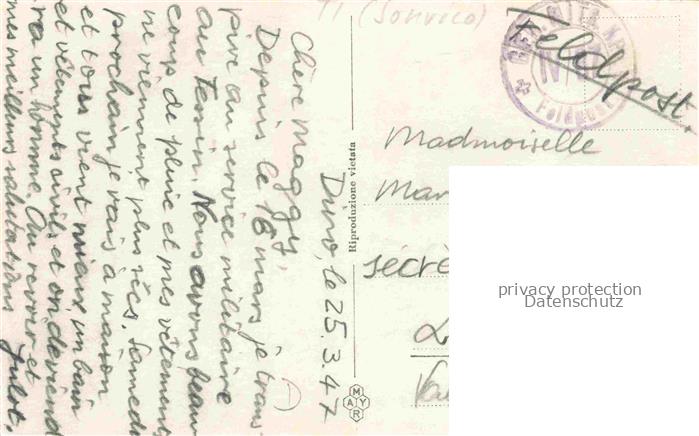 TI (Sonvico)
Dino, le 25.3.47
Chère Maggy,
Depuis le 18 mars je trans-
pire au service militaire
au Tessin. Nous avons beau-
coup de pluie et mes vêtements
ne viennent plus secs. Samedi
prochain je vais à maison
et tous vient mieux un bain
et vêtements civils et on deviend
ra un homme. Au revoir et
mes meilleurs salutations
Julot.
Riproduzione vietata
MAYR
Feldpost
Feldpost.
Madmoiselle
Mar
secrè
privacy protection
Datenschutz